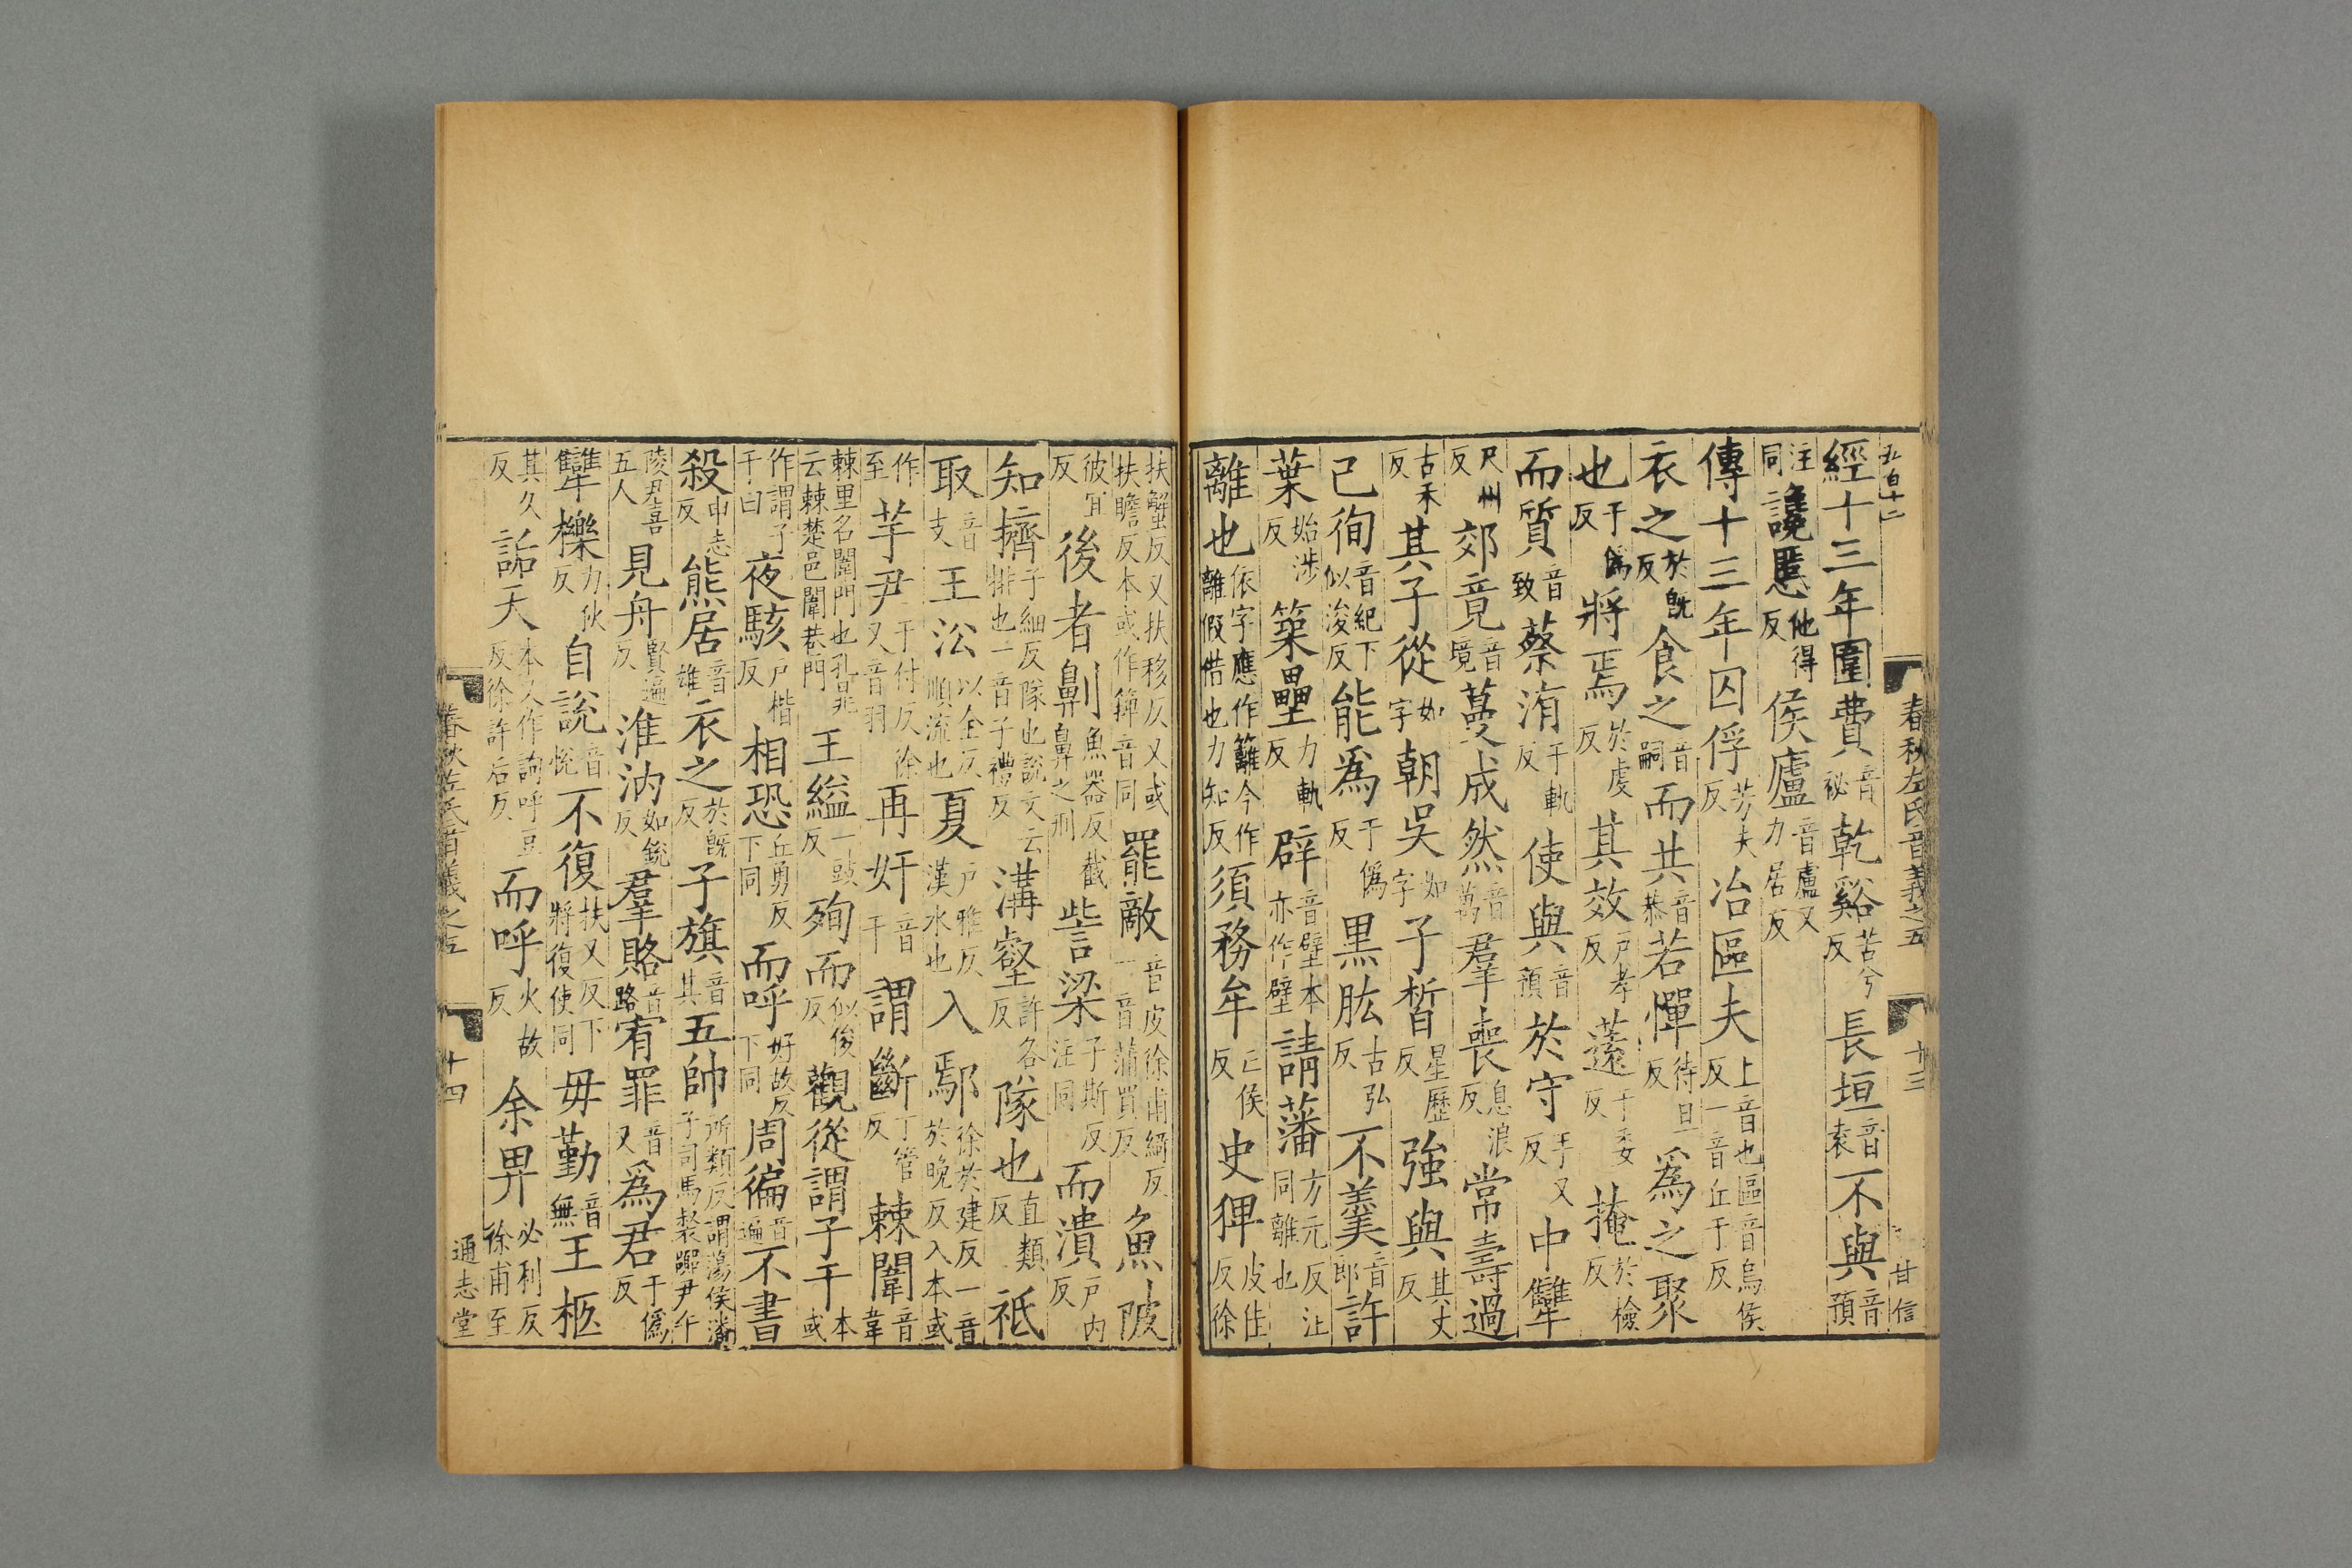 五百十二 春秋左氏音義之五 十三 甘信
經十三年圍費音祕乾谿苦兮反長垣音袁不與音預
注同讒慝他得反侯廬音廬又力居反
傳十三年囚俘芳夫反冶區夫上音也區音烏侯反一音丘于反
衣之於旣反食之音嗣而共音恭若憚待旦反爲之聚
也于僞反將焉於虔反其效戸孝反薳于委反掩於檢反
而質音致蔡洧于軌反使與音預於守手又反中犫
尺州反郊竟音境蔓成然音萬羣喪息浪反常壽過
古禾反其子從如字朝吳如字子晳星歷反強與其丈反
已徇音紀下似浚反能爲于僞反黒肱古弘反不羹音郎許
葉始涉反築壘力軌反辟音壁本亦作壁請藩方元反注同離也
離也依字應作籬今作離假借也力知反須務牟亡侯反史猈皮佳反徐
扶蟹反又扶移反又或扶瞻反本或作篺音同罷敵音皮徐甫綺反一音蒲買反魚陂
彼冝反後者劓魚器反截鼻之刑訾梁子斯反注同而潰戸内反
知擠子細反隊也說文云排也一音子禮反溝壑許各反隊也直類反祗
取音支王沿以全反順流也夏戸雅反漢水也入鄢徐於建反一音於晚反入本或
作至芋尹于付反徐又音羽再奸音干謂斷丁管反棘闈音韋
棘里名闈門也孔晁云棘楚邑闈巷門王縊一豉反殉而似俊反觀從謂子干本或
作謂子干曰夜駭戸楷反相恐丘勇反下同而呼好故反下同周徧音遍不書
殺申志反熊居音雄衣之於旣反子旗音其五帥所類反謂蕩侯潘子司馬督囂尹午
陵尹喜五人見舟賢遍反淮汭如銳反羣賂音路宥罪音又爲君于僞反
犫櫟力狄反自說音悅不復扶又反下將復使同毋勤音無王柩
其久反詬天本又作訽呼豆反徐許后反而呼火故反余畀必利反徐甫至
春秋左氏音義之五 十四 通志堂